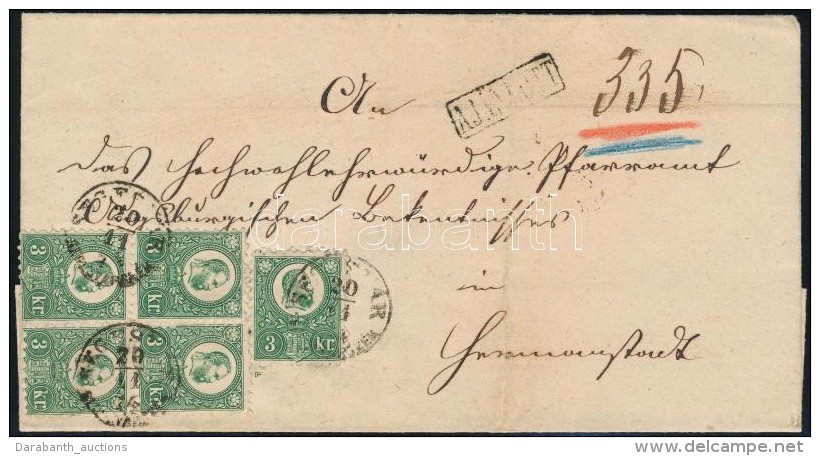 An
AJÁNLOTT
335
das hochwohlehrwürdige Pfarramt
Augsburgischen Bekentnisses
in
Hermanstadt
20
11
3 kr.
3 kr.
3 kr.
3 kr.
3 kr.
20
20
11
darabanth
Darabanth_auctions
www.delcampe.net